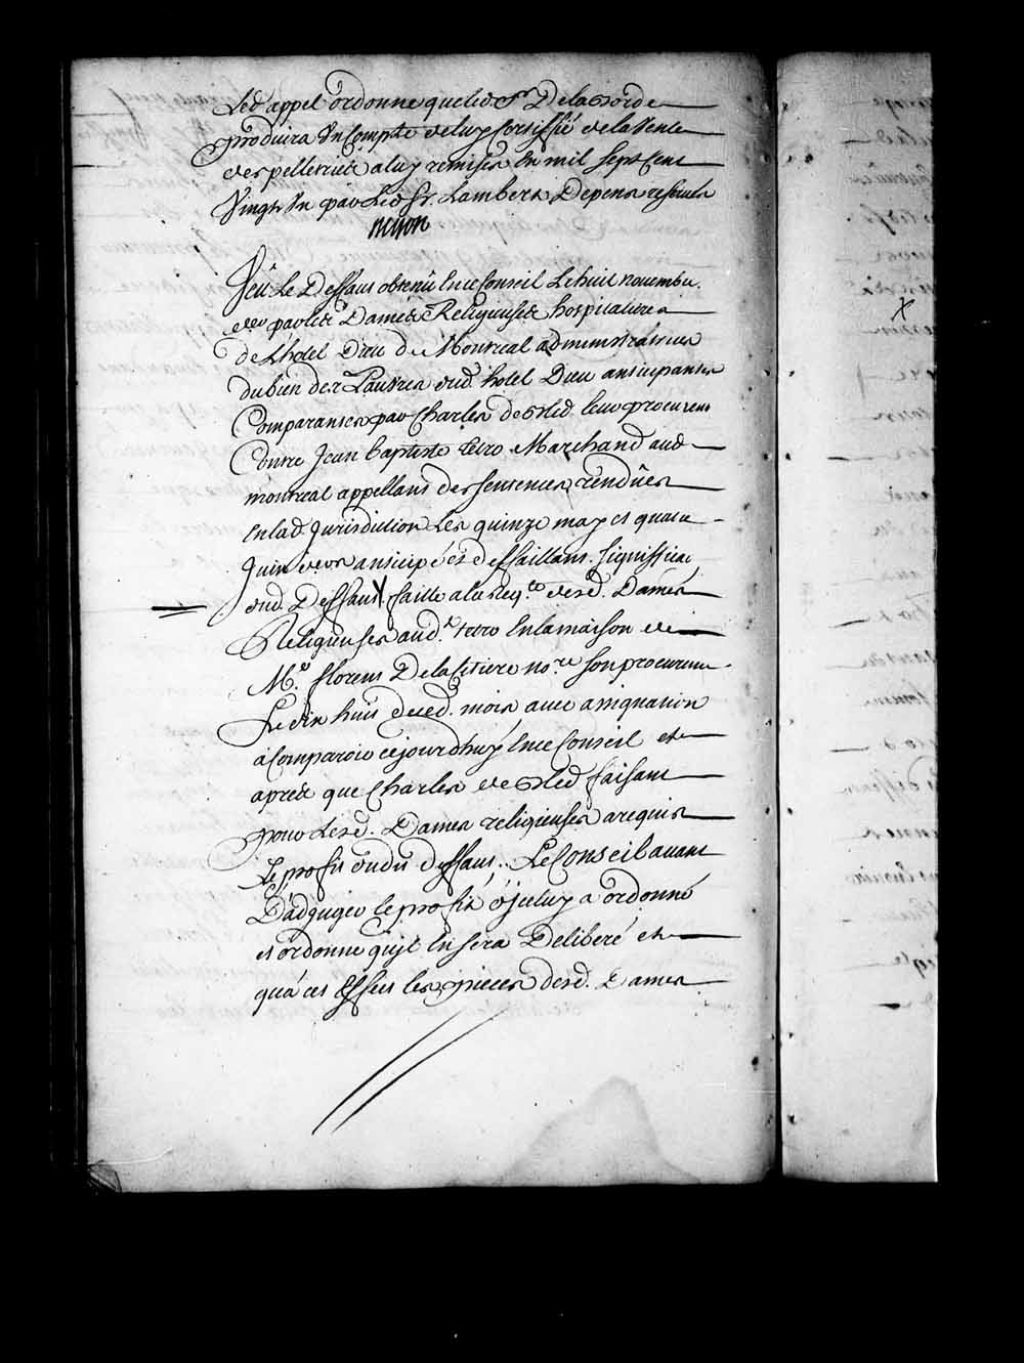 Led appel ordonne queled Sr. Delagorde
produira Un Compte deluy Certiffié delavente
des pelleteries aluy remises En mil sept cent
Vingt Un par Led Sr. Lambert Depens reservés
Veü Le Deffaut obtenu En ce Conseil Le huit novembre
der par lesd Dames Religieuses hospitalieres
de L'hotel Dieu de Montreal administratrices
du bien des Pauvres dud. hotel Dieu anticipantes
Comparantes par Charles de leur procureur
Contre Jean baptiste Tetro Marchand aud
montreal appellant des sentences rendües
En lad Jurisdiction Les quinze may et quatre
Juin der anticipé et deffaillant. Signiffica
dud. Deffaut faitte ala req.te desd. Dames
Religieuses aud. Tetro En la maison de
Me. florent Delacetiere no.re son procureur
Le dix huit dud. mois avec assignation
a Comparoir cejourd'huy En ce Conseil et
après que Charles de faisant
pour Lesd. Dames religieuses a requis
Le profit dudit deffaut; Le Conseil avant
D'adjuger le profit d'jceluy a ordonné
et ordonne qu'jl En sera Deliberé et
qu'a cet Effet les pieces desd. Dames